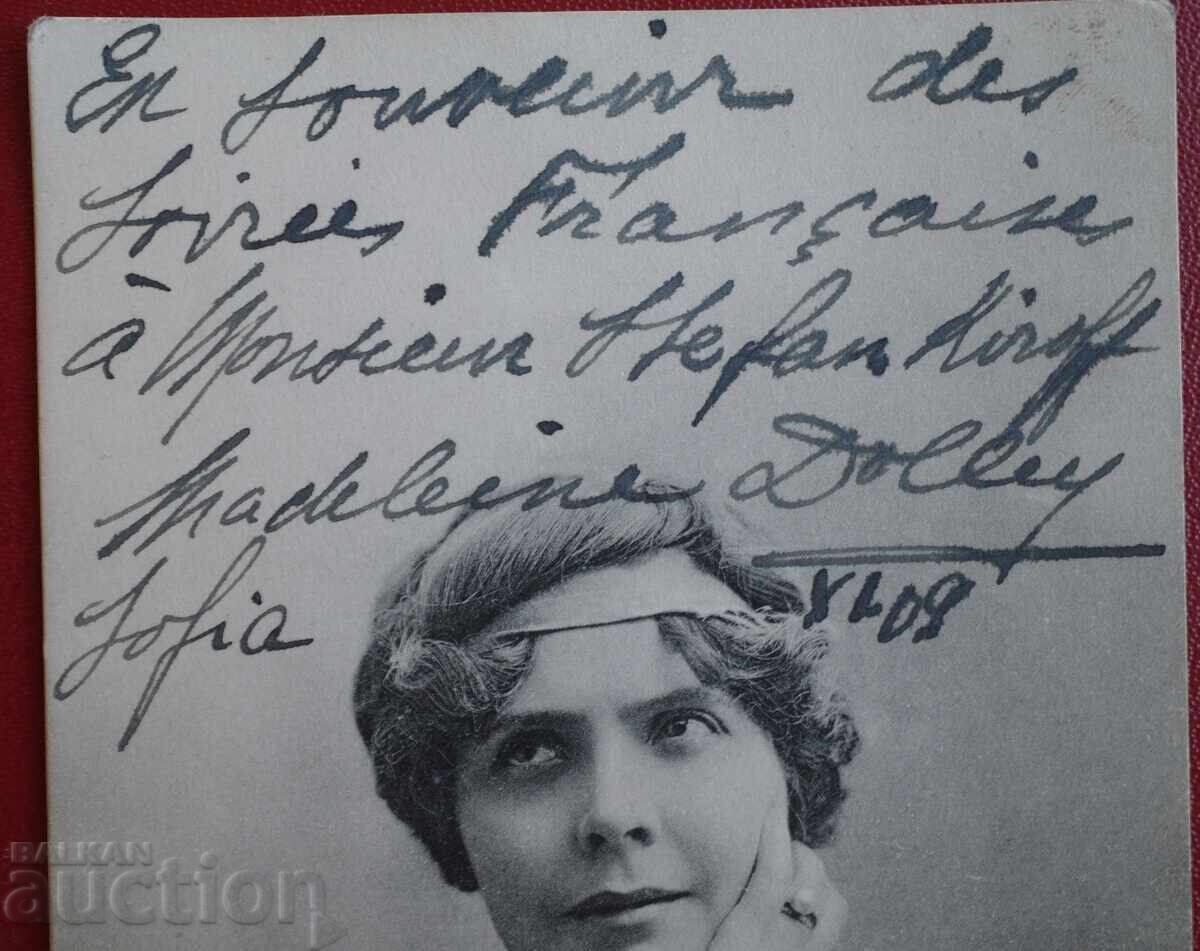 En Souvenir des
Soirées Françaises
à Monsieur Stefan Kiroff
Madeleine Dolley
Sofia
XI 08
BALKAN
auction